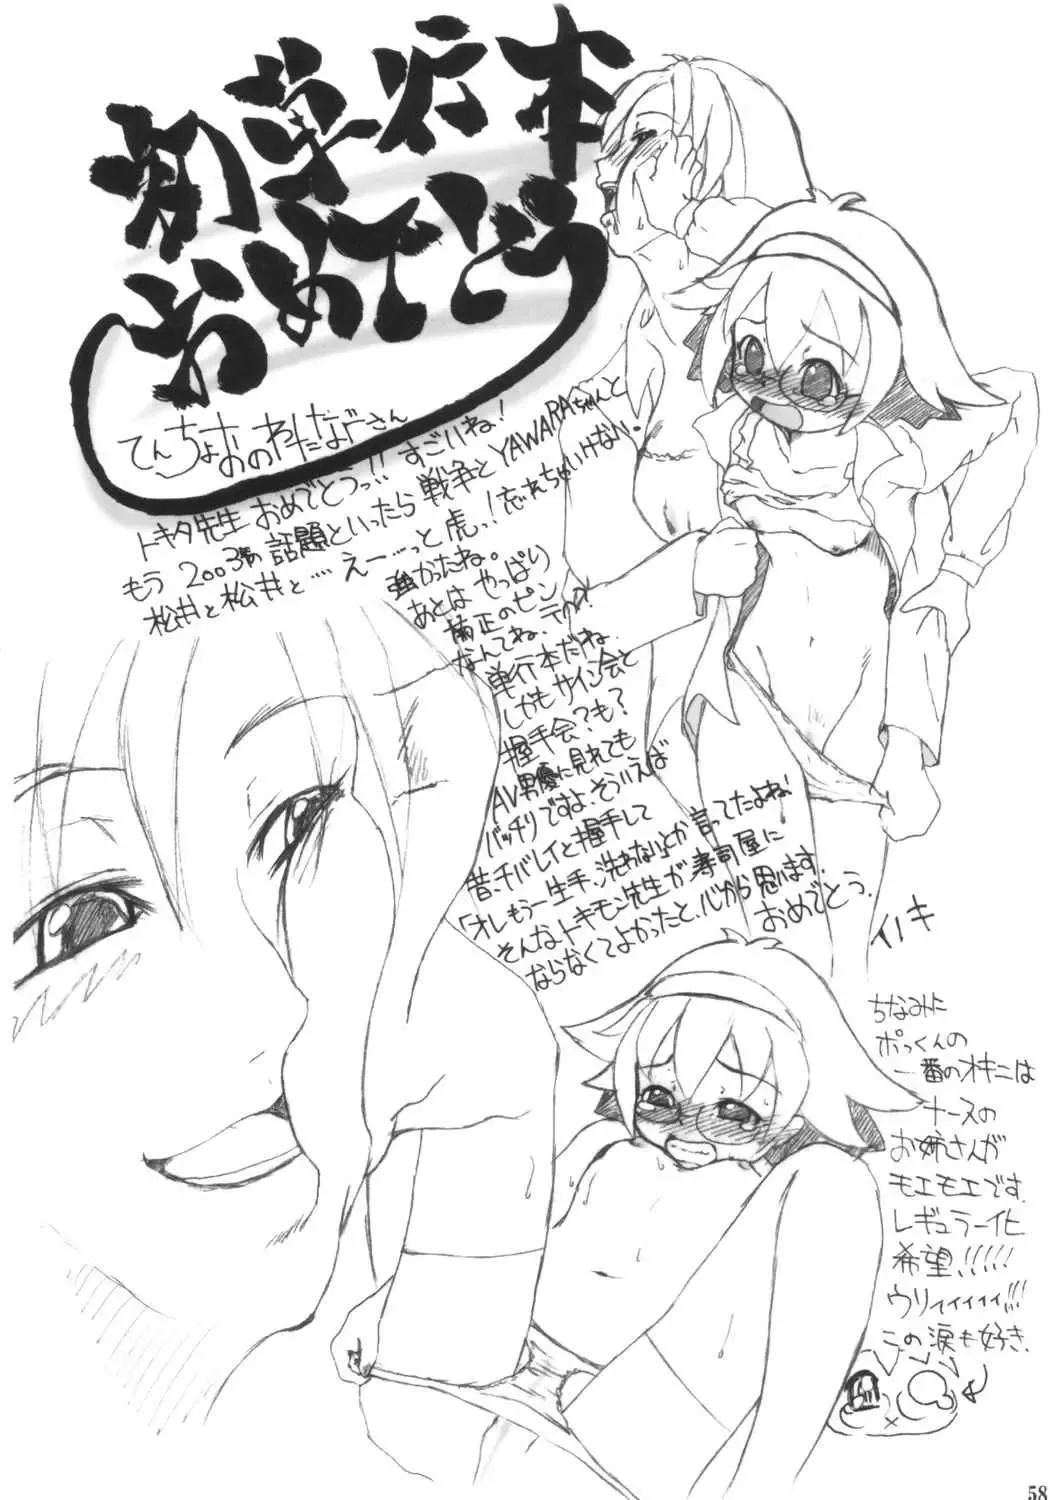 初単行本
おめでとう
てんちょおのわたなべさん
トキタ先生おめでとうっ!!すごいね!
もう2003年の話題といったら戦争とYAWARAちゃんと
松井と松井と…えーっと虎っ!忘れちゃいけない。
強かったね。
あとはやっぱり
なんてね、
単行本だね
しかもサイン会と
握手会?も?
AV男優に見れても
バッチリですよ、そういえば
昔、チバレイと握手して
「オレもう一生手、洗わない」とか言ってたよね!
そんなトキモン先生が寿司屋に
ならなくてよかったと、心から思います。
おめでとう。
イノキ
ちなみに
ボっくんの
一番のオキニは
ナースの
お姉さんが
モエモエです。
レギュラー化
希望!!!!!
ウリィィィィィ!!!
この涙も好き。
58